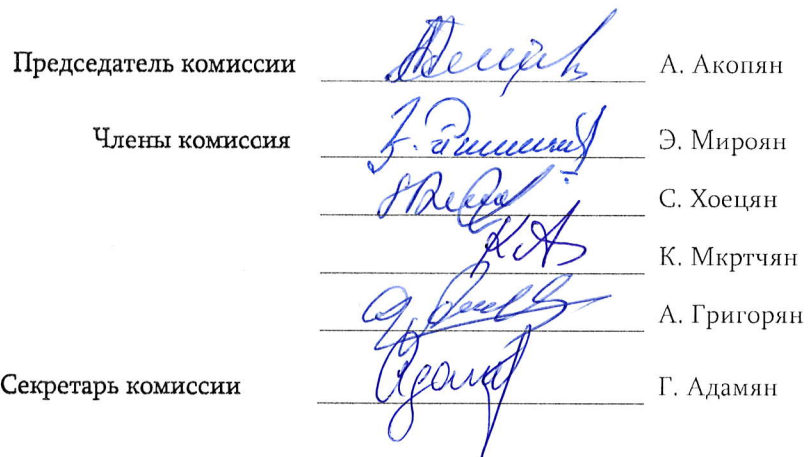 Председатель комиссии А. Акопян
Члены комиссия Э. Мироян
С. Хоецян
К. Мкртчян
А. Григорян
Секретарь комиссии Г. Адамян